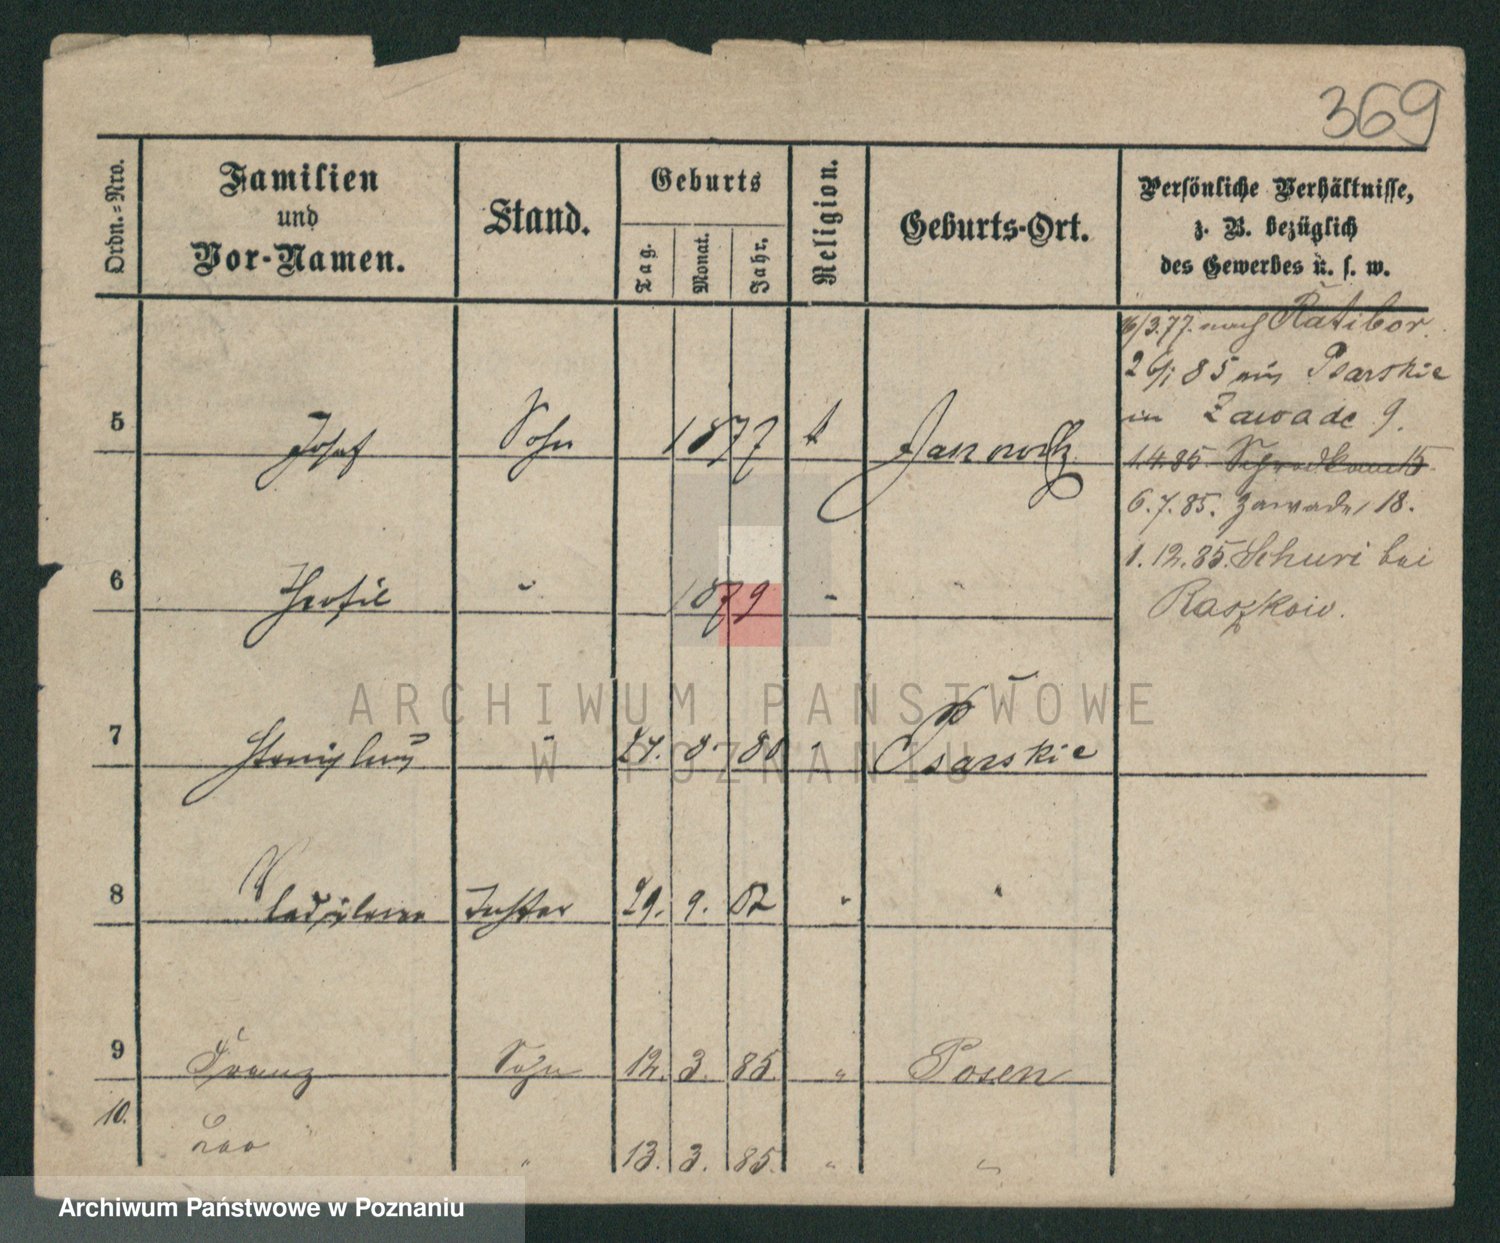 369
Ordn.-Nro.
Familien
und
Vor-Namen.
Stand.
Geburts
Tag.
Monat.
Jahr.
Religion.
Geburts-Ort.
Persönliche Verhältnisse,
z. B. bezüglich
des Gewerbes u. s. w.
16/3.77. nach Ratibor.
26/1 85 aus Psarskie
in Zawade 9.
1.4.85
6.7.85. Zawade, 18.
1.12.85. bei
Raszkow.
5 Josef Sohn 1877
6 " 1879 "
7 Stanislaus " 24. 8. 80 " Psarskie
8 Tochter 29. 9. 82 " "
9 Franz Sohn 12. 3. 85 " Posen
10. Leo " 13. 3. 85. " "
ARCHIWUM PAŃSTWOWE
W POZNANIU
Archiwum Państwowe w Poznaniu